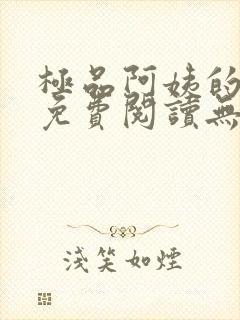 極品阿姨的
免費閱讀無
淺笑如煙